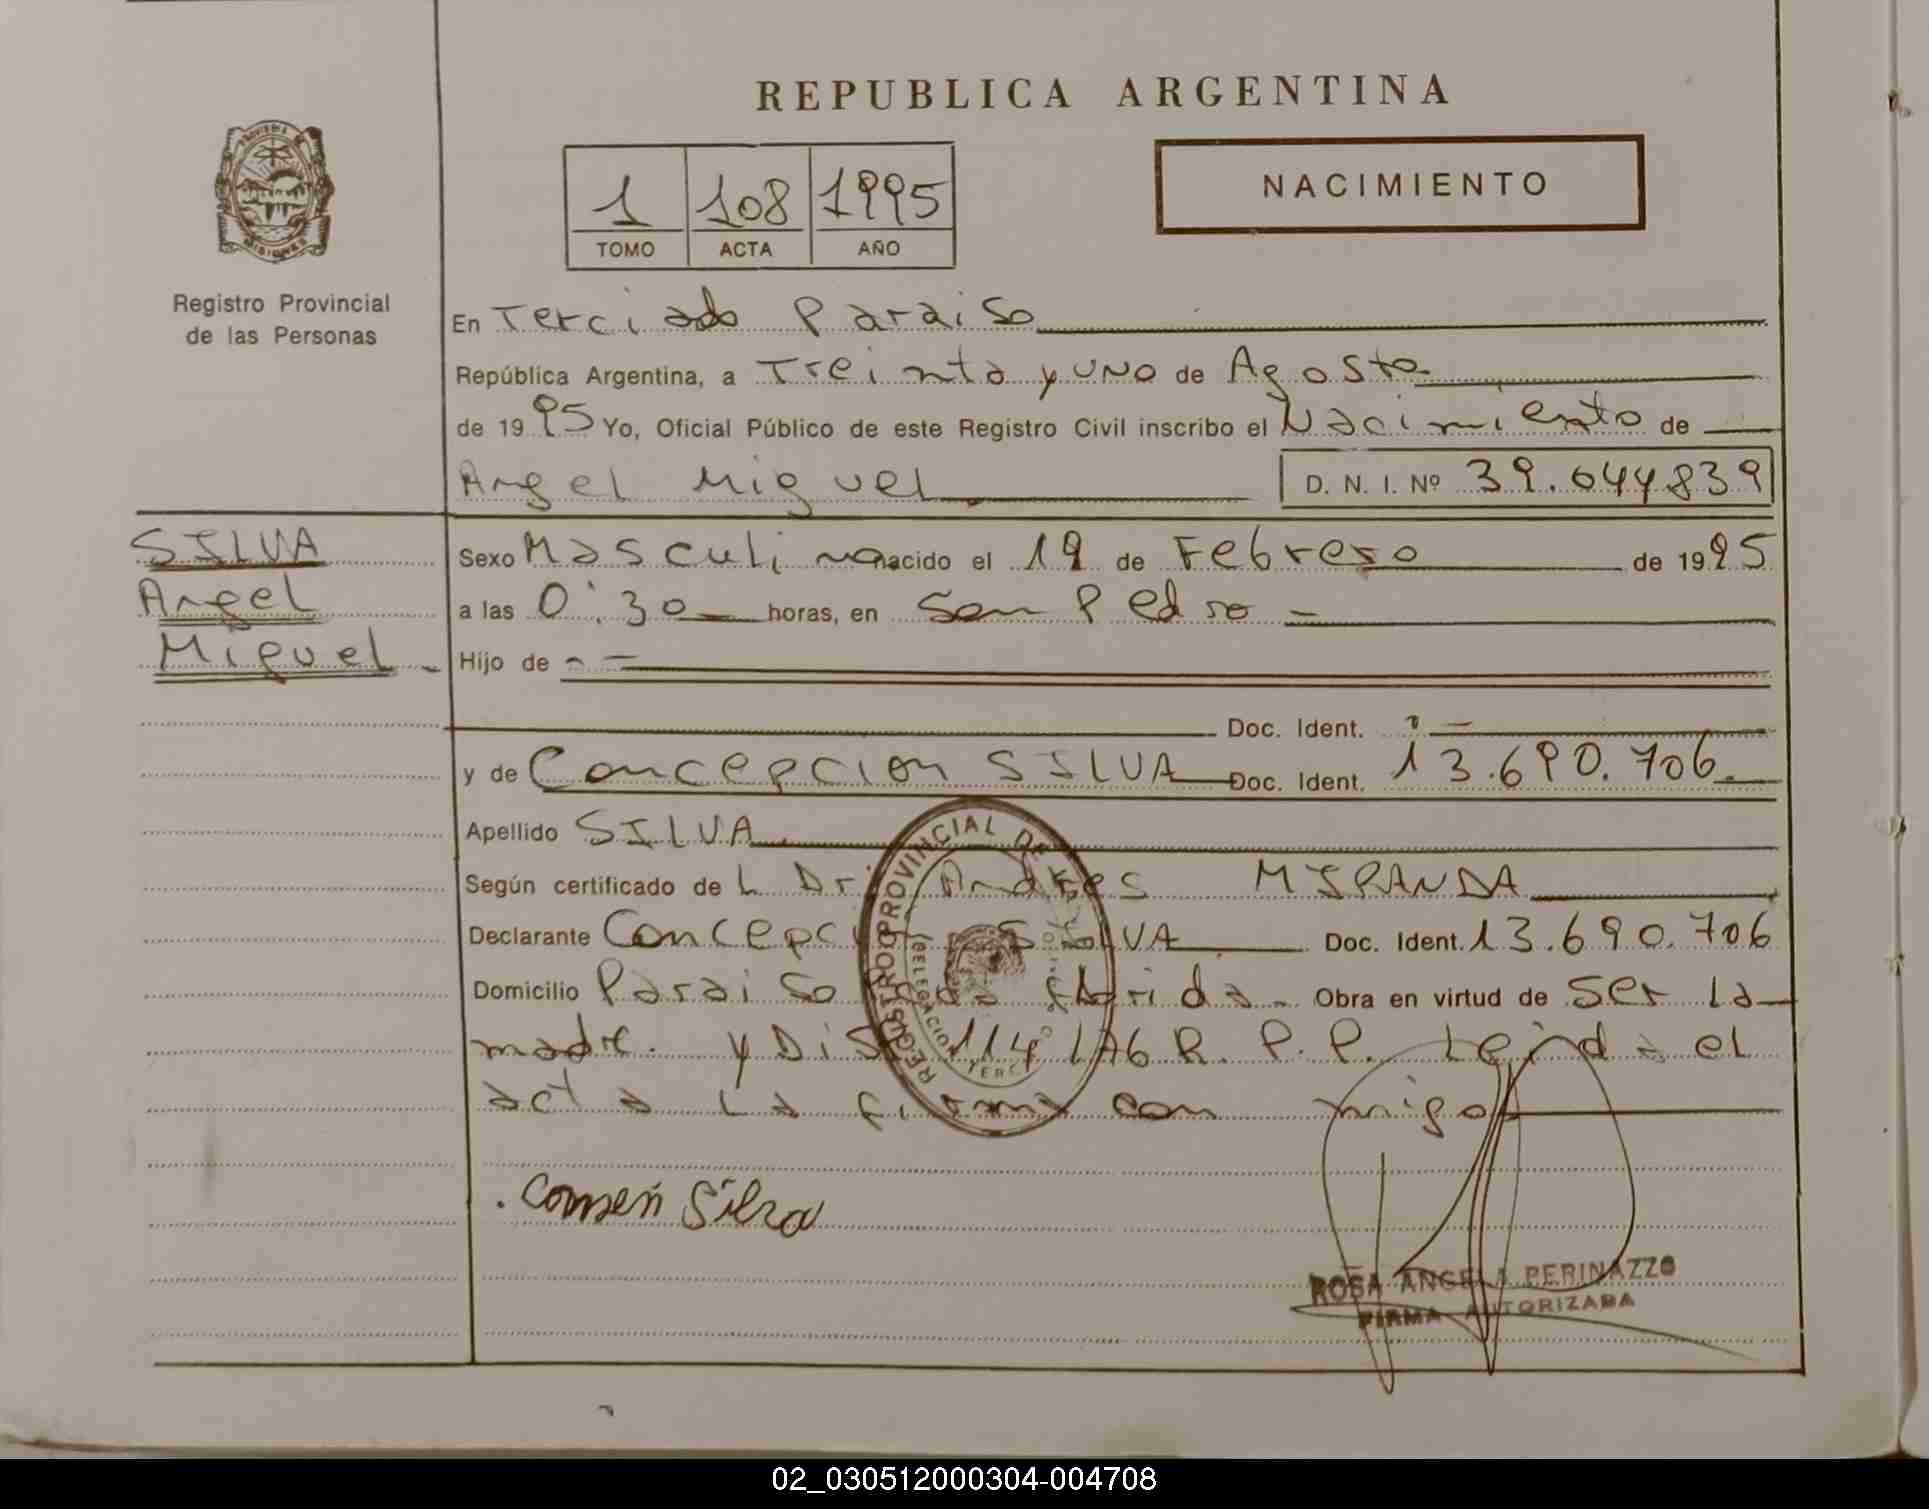 REPUBLICA ARGENTINA
PROVINCIA DE MISIONES
1 108 1995
TOMO ACTA AÑO
NACIMIENTO
Registro Provincial
de las Personas
En Terciado Paraiso
República Argentina, a Treinta y UNO de Agosto
de 1995 Yo, Oficial Público de este Registro Civil inscribo el Nacimiento de
Angel Miguel D. N. I. Nº 39.644839
SILVA
Angel
Miguel
Sexo Masculino nacido el 19 de Febrero de 1995
a las 0:30 horas, en San Pedro
Hijo de
Doc. Ident.
y de Concepcion SILVA Doc. Ident. 13.690.706
Apellido SILVA
Según certificado de L Dr. Andres MIRANDA
Declarante Concepcion SILVA Doc. Ident. 13.690.706
Domicilio Paraiso Florida Obra en virtud de ser la
madre. y Disp 114/76 R. P. P. Leida el
acta la firma con migo
REGISTRO PROVINCIAL DE
DELEGACION TERC
Silva
ROSA ANGELA PERINAZZO
FIRMA AUTORIZADA
02_030512000304-004708